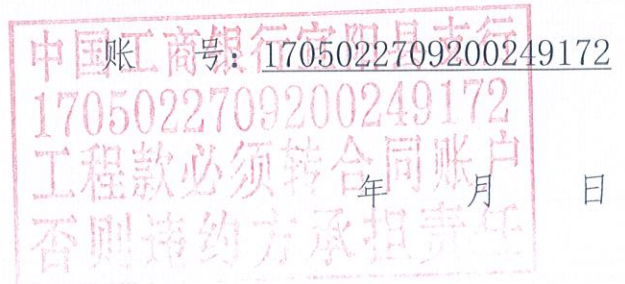 账 号: 1705022709200249172
中国工商银行宜阳县支行
1705022709200249172
工程款必须转合同账户
年 月 日
否则违约方承担责任